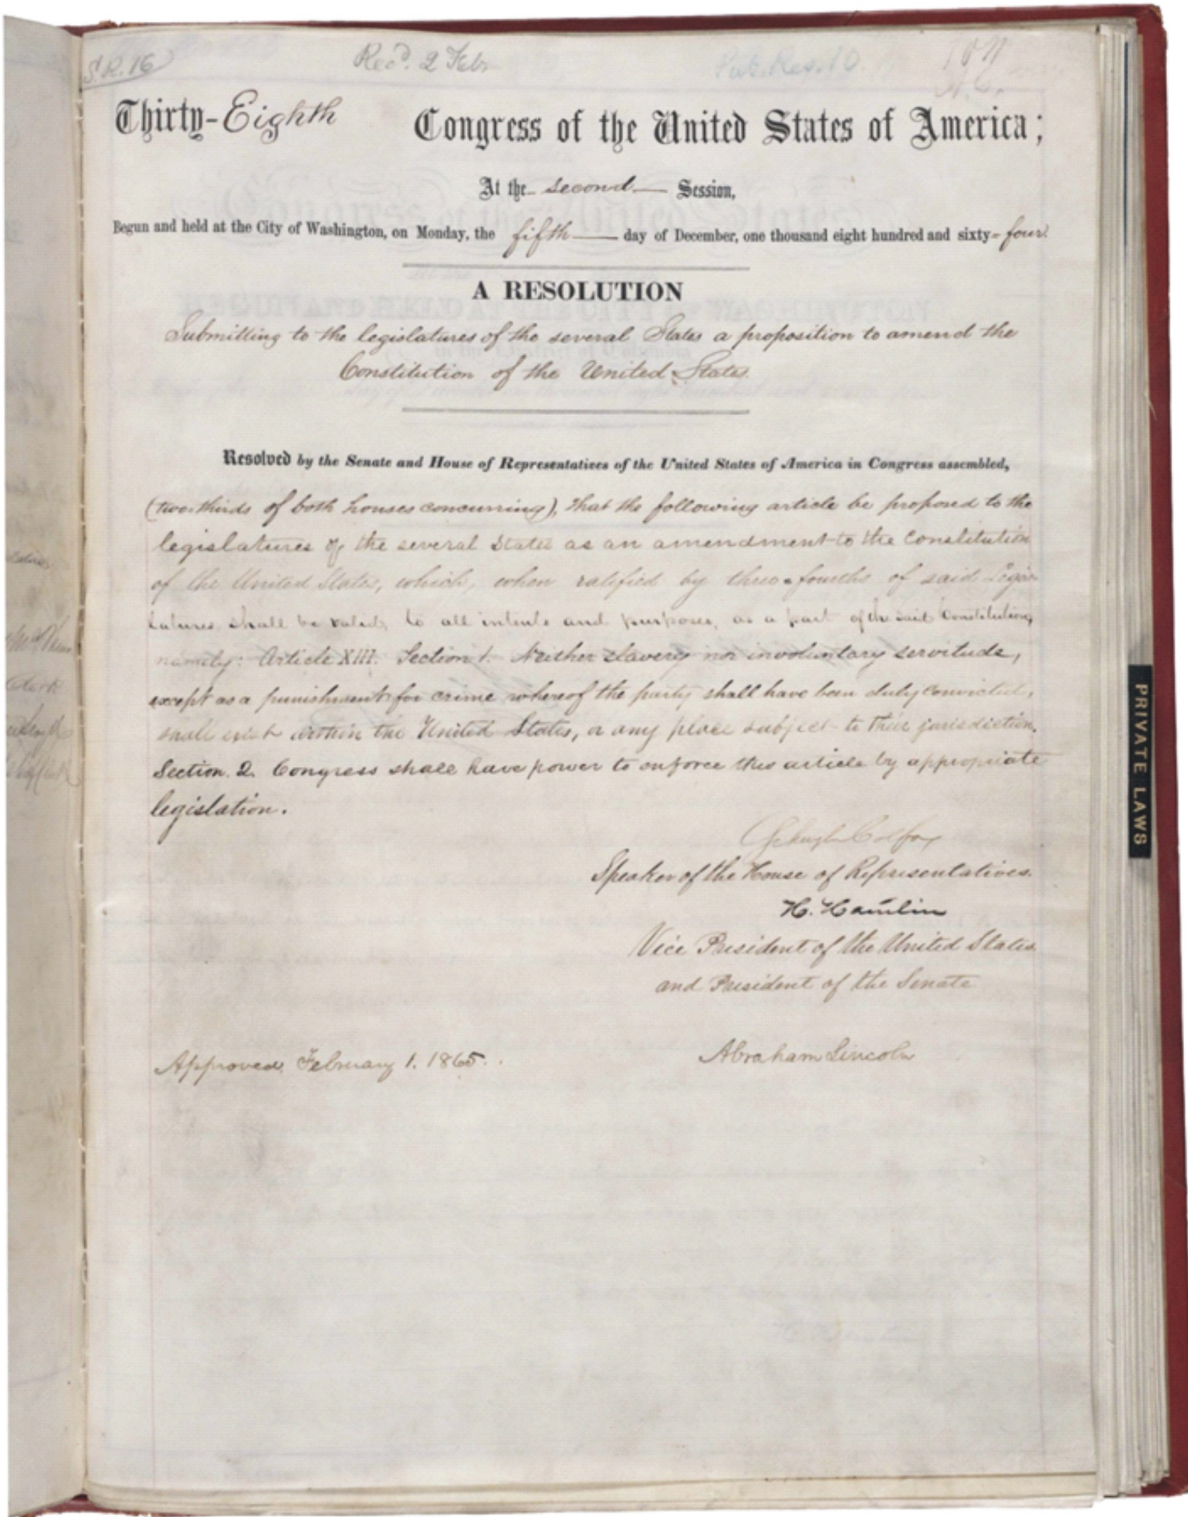 S.R. 16
Rec'd. 2 Feb
Pub. Res. 10.
Thirty-Eighth Congress of the United States of America;
At the second Session,
Begun and held at the City of Washington, on Monday, the fifth day of December, one thousand eight hundred and sixty-four.
A RESOLUTION
Submitting to the legislatures of the several States a proposition to amend the
Constitution of the United States.
Resolved by the Senate and House of Representatives of the United States of America in Congress assembled,
(two-thirds of both houses concurring), that the following article be proposed to the
legislatures of the several States as an amendment to the Constitution
of the United States, which, when ratified by three-fourths of said Legis-
latures shall be valid, to all intents and purposes, as a part of the said Constitution,
namely: Article XIII. Section 1. Neither slavery nor involuntary servitude,
except as a punishment for crime whereof the party shall have been duly convicted,
shall exist within the United States, or any place subject to their jurisdiction.
Section. 2. Congress shall have power to enforce this article by appropriate
legislation.
Schuyler Colfax
Speaker of the House of Representatives.
H. Hamlin
Vice President of the United States
and President of the Senate
Approved, February 1. 1865.
Abraham Lincoln
PRIVATE LAWS